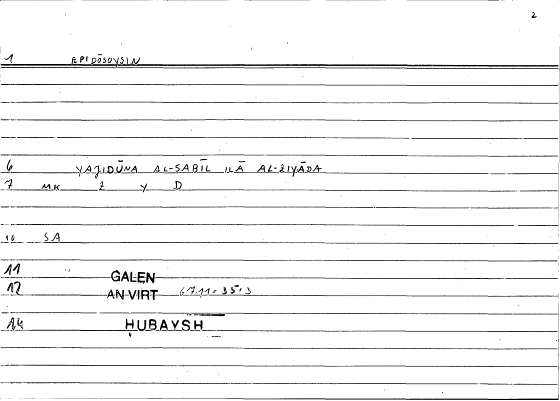 2
1 EPIDŌSOYSIN
6 YAJIDŪNA AL-SABĪL ILĀ AL-ZIYĀDA
7 MK Z Y D
10 SA
11 GALEN
12 AN VIRT 67.11 = 35.3
14 ḤUBAYSH